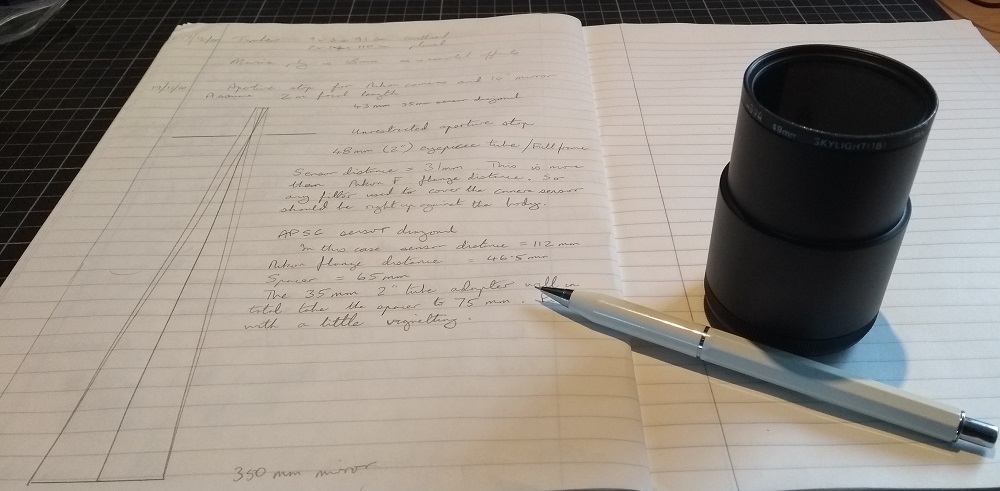 Timber
Aperture stop for Nikon camera and 14" mirror
Assume 2 m focal length
43 mm 35mm sensor diagonal
Unrestricted aperture stop
48mm (2") eyepiece tube / Full frame
Sensor distance = 31mm This is more
than Nikon F flange distance. So
any filter used to cover the camera sensor
should be right up against the body.
APSC sensor diagonal
In this case sensor distance = 112 mm
Nikon flange distance = 46.5mm
Spacer = 65mm
The 35mm 2" tube adapter will in
total take the spacer to 75 mm.
with a little vignetting.
350 mm mirror
SKYLIGHT(1B)